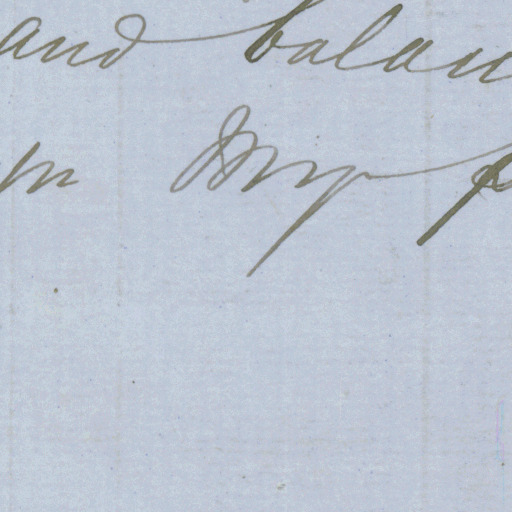 and balan
m My p